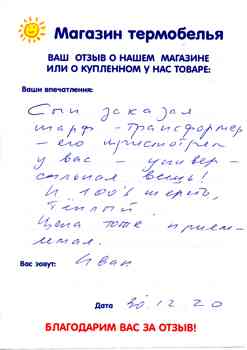 Магазин термобелья
ВАШ ОТЗЫВ О НАШЕМ МАГАЗИНЕ
ИЛИ О КУПЛЕННОМ У НАС ТОВАРЕ:
Ваши впечатления:
Сын заказал
шарф-трансформер
- его присмотрел
у вас - универ-
сальная вещь!
И 100% шерсть,
тёплый
Цена тоже прием-
лемая.
Вас зовут: Иван
Дата 30.12.20
БЛАГОДАРИМ ВАС ЗА ОТЗЫВ!